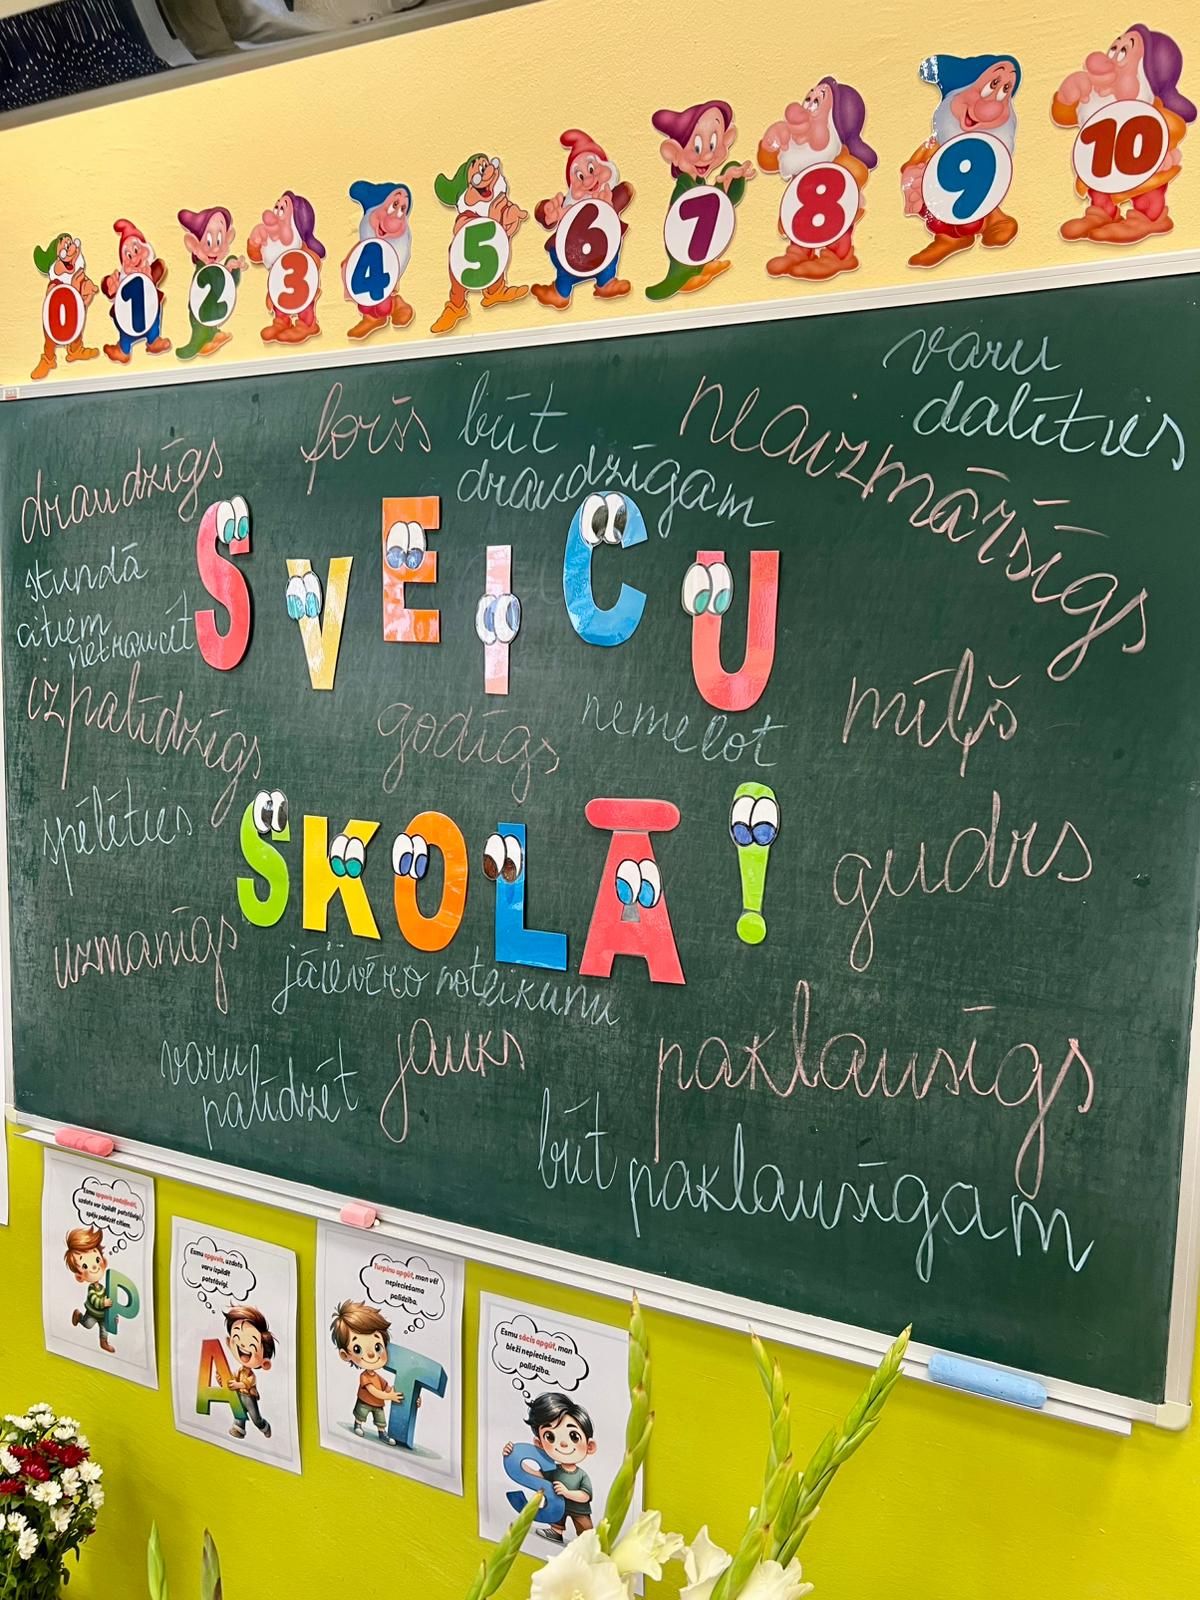 0 1 2 3 4 5 6 7 8 9 10
varu
dalīties
foršs
būt
draudzīgam
neaizmāršīgs
draudzīgs
stundā
citiem
netraucēt
SVEICU
izpalīdzīgs
godīgs
nemelot
mīļš
spēlēties
SKOLĀ!
gudrs
uzmanīgs
jāievēro noteikumi
varu
palīdzēt
jauks
paklausīgs
būt paklausīgam
Esmu apguvis padziļināti,
uzdots var izpildīt patstāvīgi
spēju palīdzēt citiem.
P
Esmu apguvis, uzdoto
varu izpildīt
patstāvīgi.
A
Turpinu apgūt, man vēl
nepieciešama
palīdzība.
T
Esmu sācis apgūt, man
bieži nepieciešama
palīdzība.
S